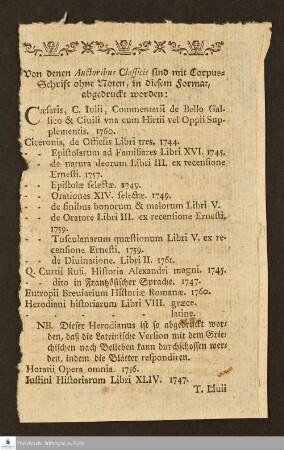 Von denen Auctoribus Classicis sind mit Corpus-
Schrift ohne Noten, in diesem Format,
abgedruckt worden:
Caesaris, C. Iulii, Commentarii de Bello Gal-
lico & Ciuili vna cum Hirtii vel Oppii Sup-
plementis. 1760.
Ciceronis, de Officiis Libri tres, 1744.
- - Epistolarum ad Familiares Libri XVI. 1745.
- - de natura deorum Libri III. ex recensione
Ernesti. 1757.
- - Epistolæ selectæ. 1749.
- - Orationes XIV. selectæ. 1749.
- - de finibus bonorum & malorum Libri V.
- - de Oratore Libri III. ex recensione Ernesti,
1759.
- - Tusculanarum quæstionum Libri V. ex re-
censione Ernesti. 1759.
- - de Diuinatione. Libri II. 1761.
Q. Curtii Rufi, Historia Alexandri magni. 1745.
- - dito in Frantzösischer Sprache. 1747.
Eutropii Breviarium Historiæ Romanæ. 1760.
Herodiani historiarum Libri VIII. græce.
latine.
NB. Dieser Herodianus ist so abgedruckt wor-
den, daß die Lateinische Version mit dem Grie-
chischen nach Belieben kann durchschossen wer-
den, indem die Blätter respondiren.
Horatii Opera omnia. 1756.
Iustini Historiarum Libri XLIV. 1747.
T. Liuii